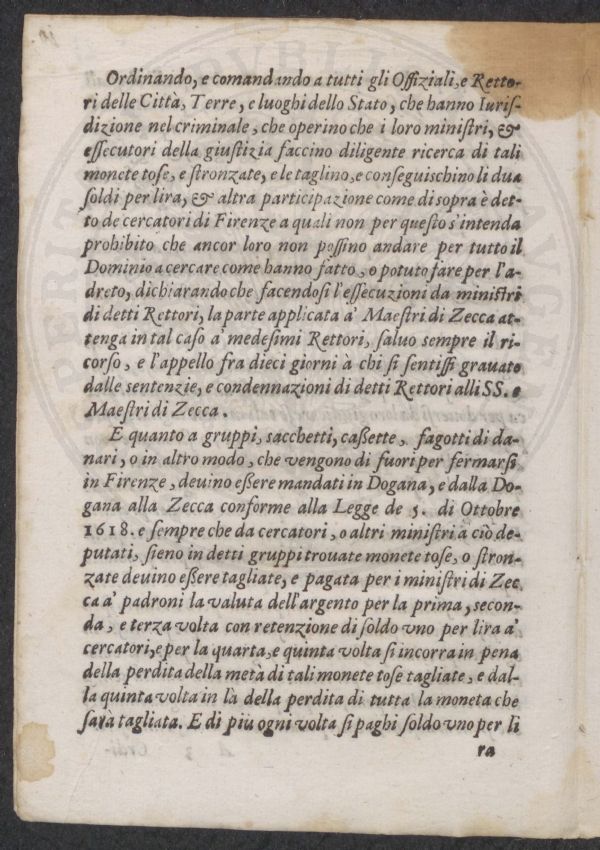 Ordinando, e comandando a tutti gli Offiziali, e Retto-
ri delle Città, Terre, e luoghi dello Stato, che hanno Iurisſ-
dizione nel criminale, che operino che i loro miniſtri, &
eſſecutori della giuſtizia faccino diligente ricerca di tali
monete toſe, e ſtronzate, e le taglino, e conſeguiſchino li dua
ſoldi per lira, & altra participazione come di sopra è det-
to de cercatori di Firenze a quali non per queſto s'intenda
prohibito che ancor loro non poſſino andare per tutto il
Dominio a cercare come hanno fatto, o potuto fare per l'a-
dreto, dichiarando che facendoſi l'eſſecuzioni da miniſtri
di detti Rettori, la parte applicata a' Maeſtri di Zecca at-
tenga in tal caſo a' medeſimi Rettori, ſaluo sempre il ri-
corſo, e l'appello fra dieci giorni à chi ſi ſentiſſi grauato
dalle sentenzie, e condennazioni di detti Rettori alli SS. e
Maeſtri di Zecca.
E quanto a gruppi, sacchetti, caßette, fagotti di da-
nari, o in altro modo, che vengono di fuori per fermarſi
in Firenze, deuino eßere mandati in Dogana, e dalla Do-
gana alla Zecca conforme alla Legge de 5. di Ottobre
1618. e ſempre che da cercatori, o altri miniſtri à ciò de-
putati, ſieno in detti gruppi trouate monete toſe, o ſtron-
zate deuino eßere tagliate, e pagata per i miniſtri di Zec
ca a' padroni la valuta dell'argento per la prima, secon-
da, e terza volta con retenzione di ſoldo vno per lira a'
cercatori, e per la quarta, e quinta volta ſi incorra in pena
della perdita della metà di tali monete toſe tagliate, e dal-
la quinta volta in là della perdita di tutta la moneta che
ſarà tagliata. E di più ogni volta ſi paghi ſoldo vno per li
ra